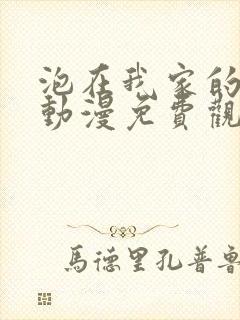 泡在我家的
動漫免費觀
馬德里孔普魯